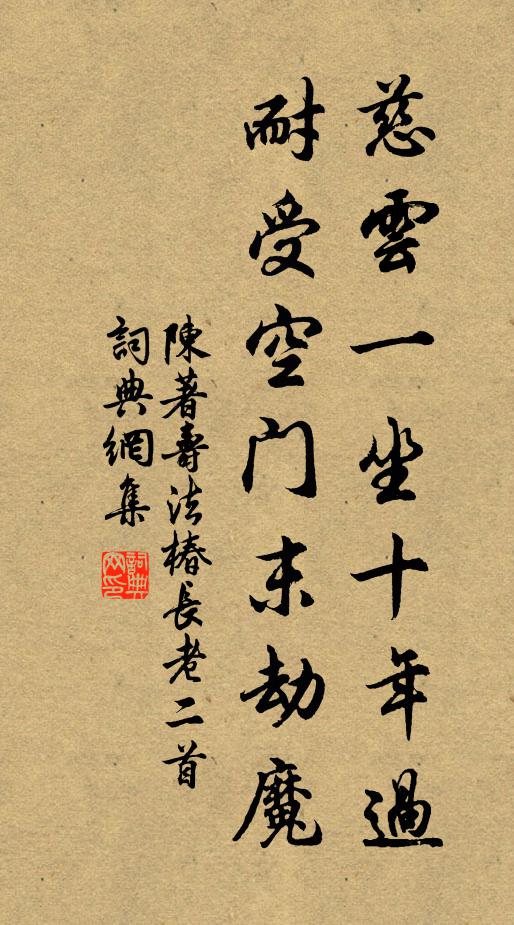 慈雲一坐十年過
耐受空門末劫魔
陳著壽法椿長老二首
詞典網集
詞典
网印